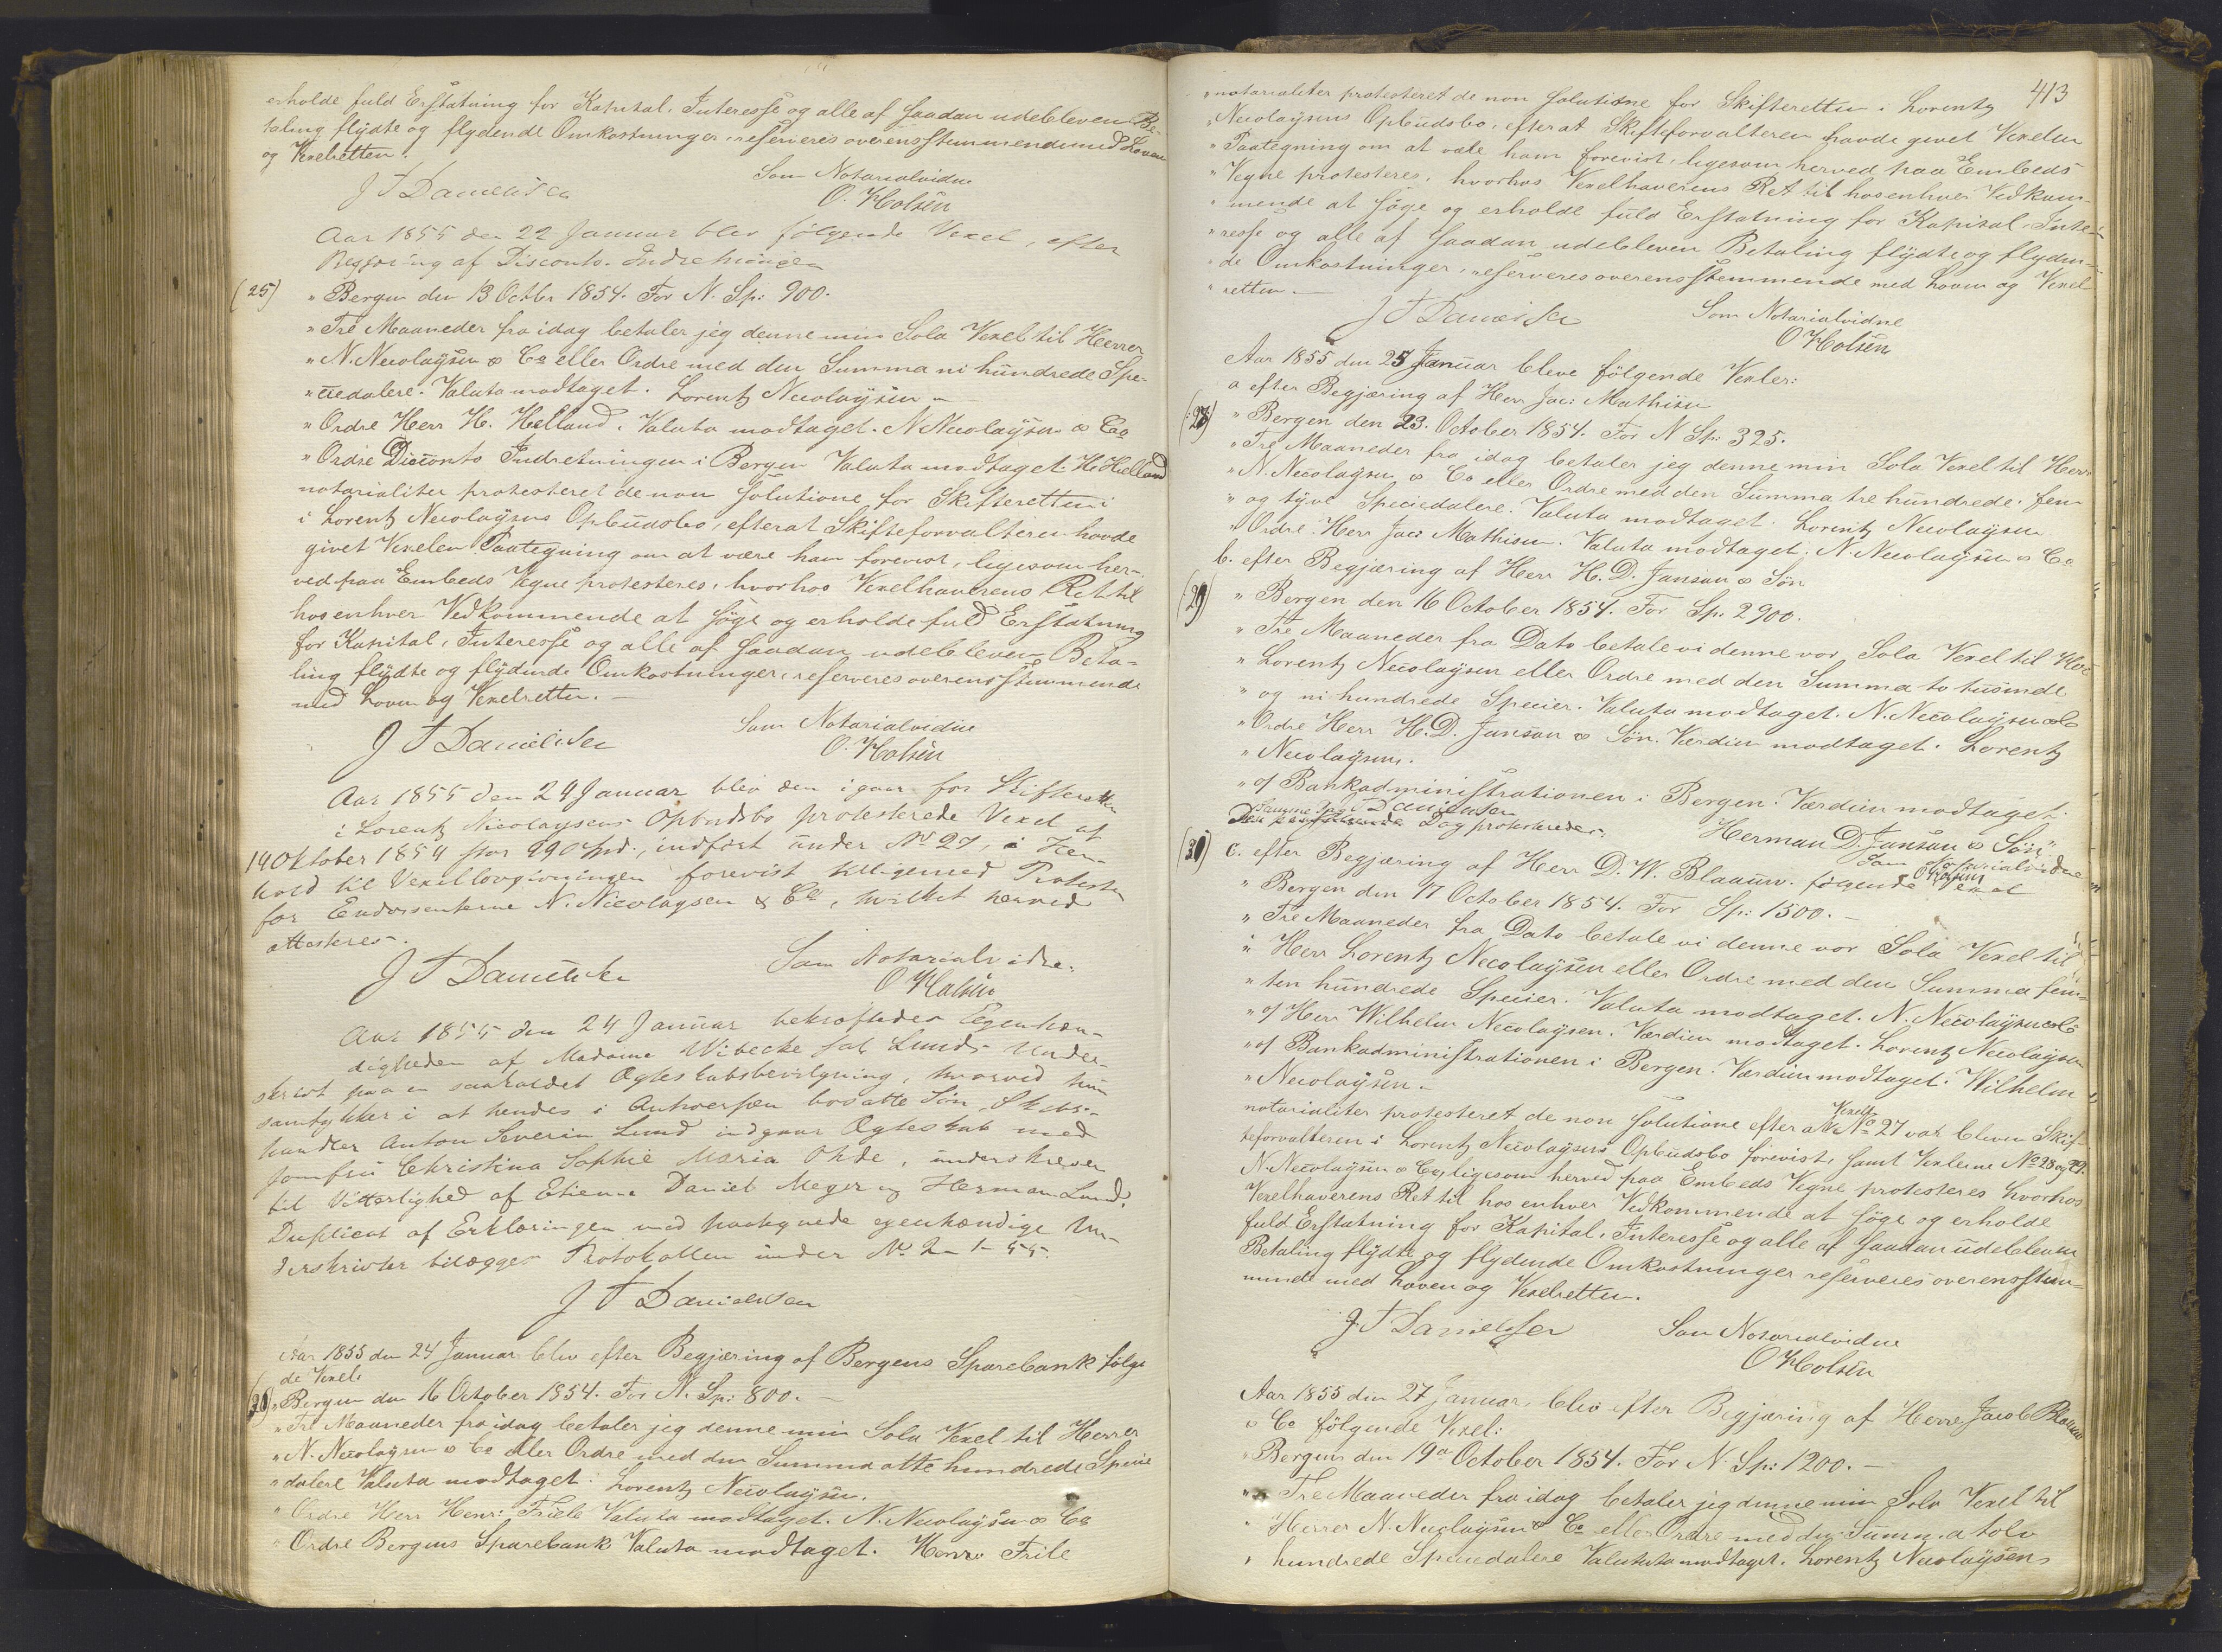 erholde fuld Erstatning for Kapital, Interesse og alle af saadan udebleven Be-
taling flydte og flydende Omkostninger, reserveres overensstemmende med Loven
og Vexelretten.
J T Danielsen
Som Notarialvidne
O. Holsen
Aar 1855 den 22 Januar blev følgende Vexel, efter
Begjæring af Disconto-Indretningen
(25) " Bergen den 13 Octbr 1854. For N. Sp: 900.
" Tre Maaneder fra idag betaler jeg denne min Sola Vexel til Herrer
" N. Nicolaysen & Co eller Ordre med den Summa ni hundrede Spe-
" ciedalere. Valuta modtaget. Lorentz Nicolaysen
" Ordre Herr H. Helland. Valuta modtaget. N Nicolaysen & Co
" Ordre Disconto Indretningen i Bergen Valuta modtaget H. Helland
notarialiter protesteret de non solutione for Skifteretten i
i Lorentz Nicolaysens Opbudsbo, efterat Skifteforvalteren havde
givet Vexelen Paategning om at være ham forevist, ligesom her-
ved paa Embeds Vegne protesteres, hvorhos Vexelhaverens Ret til
hos enhver Vedkommende at søge og erholde fuld Erstatning
for Kapital, Interesse og alle af saadan udebleven Beta-
ling flydte og flydende Omkostninger, reserveres overensstemmende
med Loven og Vexelretten.
J T Danielsen
Som Notarialvidne
O. Holsen
Aar 1855 den 24 Januar blev den igaar for Skifteretten
i Lorentz Nicolaysens Opbudsbo protesterede Vexel af
14 Oktober 1854 stor 990 Spd., indført under No 27, i Hen-
hold til Vexellovgivningen forevist tilligemed Protesten
for Endossenterne N. Nicolaysen & Co, hvilket herved
attesteres.
J T Danielsen
Som Notarialvidne.
O Holsen
Aar 1855 den 24 Januar bekræftedes Egenhæn-
digheden af Madame Wibecke sal. Lunds Under-
skrivt paa en saakaldet Ægteskabsbevilgning, hvorved hun
samtykker i at hendes i Antwerpen bosatte Søn, Skibs-
handler Anton Severin Lund indgaar Ægteskab med
Jomfru Christina Sophie Maria Ohde, underskreven
til Vitterlighed af Etienne Daniel Meyer og Herman Lund.
Duplicat af Erklæringen med paategnede egenhændige Un-
derskrivter bilægges Protokollen under No. 2-1-55.
J T Danielsen
Aar 1855 den 24 Januar blev efter Begjæring af Bergens Sparebank følge
de Vexel:
" Bergen den 16 October 1854. For N. Sp: 800.
" Tre Maaneder fra idag betaler jeg denne min Sola Vexel til Herrer
" N. Nicolaysen & Co eller Ordre med den Summa otte hundrede Specie
" dalere Valuta modtaget. Lorentz Nicolaysen.
" Ordre Herr Henr: Friele Valuta modtaget. N. Nicolaysen & Co
" Ordre Bergens Sparebank Valuta modtaget. Henr. Friele
413
" notarialiter protesteret de non solutione for Skifteretten i Lorentz
" Nicolaysens Opbudsbo, efterat Skifteforvalteren havde givet Vexelen
" Paategning om at være ham forevist, ligesom herved paa Embeds
" Vegne protesteres, hvorhos Vexelhaverens Ret til hos enhver Vedkom-
" mende at søge og erholde fuld Erstatning for Kapital, Inte-
" resse og alle af saadan udebleven Betaling flydte og flyden-
" de Omkostninger, reserveres overensstemmende med Loven og Vexel
" retten.
J T Danielsen
Som Notarialvidne
O Holsen
Aar 1855 den 25 Januar bleve følgende Vexler:
a efter Begjæring af Herr Jac: Mathisen
" Bergen den 23. October 1854. For N Sp: 325.
" Tre Maaneder fra idag betaler jeg denne min Sola Vexel til Herr
" N. Nicolaysen & Co eller Ordre med den Summa tre hundrede fem
" og tyve Speciedalere. Valuta modtaget. Lorentz Nicolaysen
" Ordre Herr Jac: Mathisen. Valuta modtaget. N. Nicolaysen & Co
b. efter Begjæring af Herr H. D. Janson & Søn
(29) " Bergen den 16 October 1854. For Sp: 2900.
" Tre Maaneder fra Dato betale vi denne vor Sola Vexel til Herr
" Lorentz Nicolaysen eller Ordre med den Summa to tusinde
" og ni hundrede Specier. Valuta modtaget. N. Nicolaysen & Co
" Ordre Herr H. D. Janson & Søn. Værdien modtaget. Lorentz
" Nicolaysen.
" of Bankadministrationen i Bergen. Værdien modtaget.
Herman D. Janson & Søn"
Danielsen
Dag protesteredes.
Som Notarialvidne
O Holsen
c. efter Begjæring af Herr D. W. Blaauw. følgende Vexel
" Bergen den 17 October 1854. For Sp: 1500.
" Tre Maaneder fra Dato betale vi denne vor Sola Vexel til
" Herr Lorentz Nicolaysen eller Ordre med den Summa fem-
" ten hundrede Specier. Valuta modtaget. N. Nicolaysen & Co
" of Herr Wilhelm Nicolaysen. Værdien modtaget. Lorentz Nicolaysen
" of Bankadministrationen i Bergen. Værdien modtaget. Wilhelm
" Nicolaysen.
notarialiter protesteret de non solutione efter at Vexel No 27 var bleven Skif-
teforvalteren i Lorentz Nicolaysens Opbudsbo forevist, samt Vexlerne No 28 og 29.
N. Nicolaysen & Co, ligesom herved paa Embeds Vegne protesteres hvorhos
Vexelhaverens Ret til hos enhver Vedkommende at søge og erholde
fuld Erstatning for Kapital, Interesse og alle af saadan udebleven
Betaling flydte og flydende Omkostninger reserveres overensstem-
mende med Loven og Vexelretten.
J. T Danielsen
Som Notarialvidne
O Holsen
Aar 1855 den 27 Januar, blev efter Begjæring af Herrer Jacob Blaauw
& Co følgende Vexel:
" Bergen den 19de October 1854. For N. Sp: 1200.
" Tre Maaneder fra idag betaler jeg denne min Sola Vexel til
" Herrer N. Nicolaysen & Co eller Ordre med den Summa tolv
" hundrede Speciedalere Valututa modtaget. Lorentz Nicolaysen